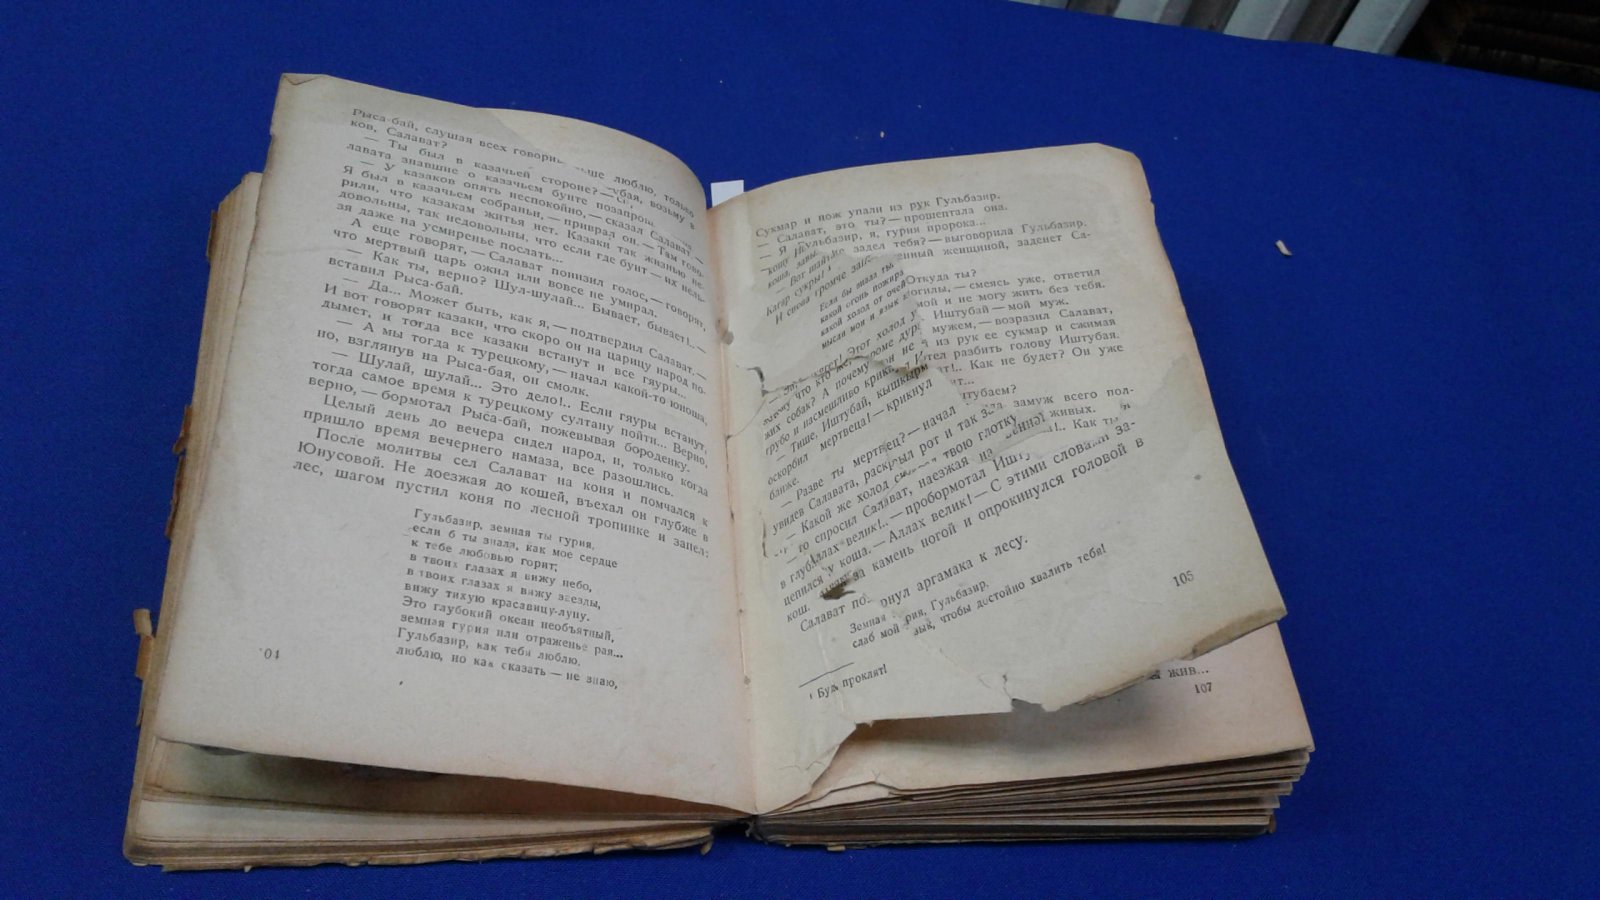 Рыса-бай, слушая всех говори
ше люблю, только
ков, Салават?
убая, возьму в
— Ты был в казачьей стороне? —
лавата знавшие о казачьем бунте позапрош
— У казаков опять неспокойно, — сказал Салават. —
Я был в казачьем собраньи, — приврал он. — Там гово-
рили, что казакам житья нет. Казаки так жизнью не-
довольны, так недовольны, что если где бунт — их нель-
зя даже на усмиренье послать...
А еще говорят, — Салават понизил голос, — говорят,
что мертвый царь ожил или вовсе не умирал.
— Как ты, верно? Шул-шулай... Бывает, бывает!.. —
вставил Рыса-бай.
— Да... Может быть, как я, — подтвердил Салават. —
И вот говорят казаки, что скоро он на царицу народ по-
дымет, и тогда все казаки встанут и все гяуры...
— А мы тогда к турецкому, — начал какой-то юноша,
но, взглянув на Рыса-бая, он смолк.
— Шулай, шулай... Это дело!.. Если гяуры встанут,
тогда самое время к турецкому султану пойти... Верно,
верно, — бормотал Рыса-бай, пожевывая бороденку.
Целый день до вечера сидел народ, и, только когда
пришло время вечернего намаза, все разошлись.
После молитвы сел Салават на коня и помчался к
Юнусовой. Не доезжая до кошей, въехал он глубже в
лес, шагом пустил коня по лесной тропинке и запел:
Гульбазир, земная ты гурия,
если б ты знала, как мое сердце
к тебе любовью горит;
в твоих глазах я вижу небо,
в твоих глазах я вижу звезды,
вижу тихую красавицу-луну.
Это глубокий океан необъятный,
земная гурия или отраженье рая...
Гульбазир, как тебя люблю,
люблю, но как сказать — не знаю,
04
Сукмар и нож упали из рук Гульбазир.
— Салават, это ты? — прошептала она.
— Я, Гульбазир, я, гурия пророка...
задел тебя? — выговорила Гульбазир.
женщиной, заденет Са-
Кагар сукры!
И снова громче
Если бы знала ты,
какой огонь пожира
какой холод от очей
мысли мои и язык
Откуда ты?
могилы, — смеясь уже, ответил
мой и не могу жить без тебя.
Иштубай — мой муж.
мужем, — возразил Салават,
из рук ее сукмар и сжимая
тел разбить голову Иштубая.
Как не будет? Он уже
Этот холод
что кто
кроме дур
жих собак? А почему он не
грубо и насмешливо крик
— Тише, Иштубай, кышкырм
оскорбил мертвеца! — крикнул
банже.
тубаем?
замуж всего пол-
живых.
— Разве ты мертвец? — начал
увидев Салавата, раскрыл рот и так за
— Какой же холод твою глотку
то спросил Салават, наезжая на
Как ты
в глуб Аллах велик!.. — пробормотал Ишту
цепился у коша. — Аллах велик! — С этими словами за-
кош. за камень ногой и опрокинулся головой в
Салават по рнул аргамака к лесу.
Земная рия, Гульбазир,
слаб мой зык, чтобы достойно хвалить тебя!
¹ Будь проклят!
105
жив...
107